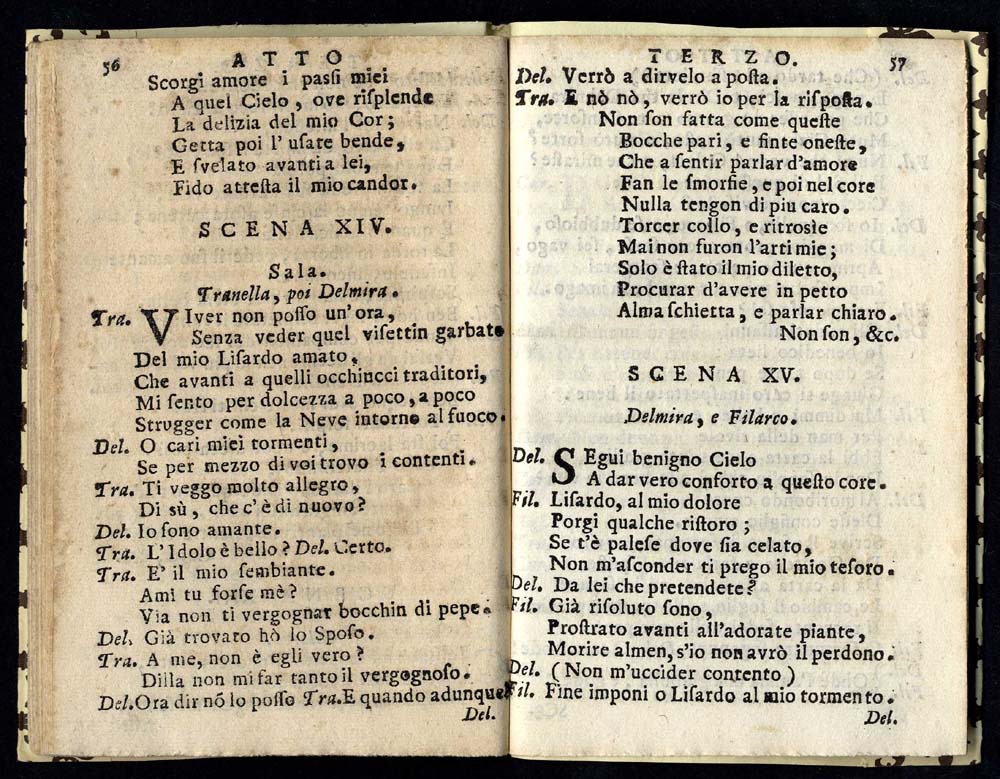 56 ATTO
Scorgi amore i paſſi miei
A quel Cielo, ove riſplende
La delizia del mio Cor;
Getta poi l' uſate bende,
E ſvelato avanti a lei,
Fido atteſta il mio candor.
SCENA XIV.
Sala.
Tranella, poi Delmira.
Tra. VIver non poſſo un'ora,
Senza veder quel viſettin garbato
Del mio Liſardo amato.
Che avanti a quelli occhiucci traditori,
Mi ſento per dolcezza a poco, a poco
Strugger come la Neve intorno al fuoco.
Del. O cari miei tormenti,
Se per mezzo di voi trovo i contenti.
Tra. Ti veggo molto allegro,
Di sù, che c'è di nuovo?
Del. Io ſono amante.
Tra. L'Idolo è bello? Del. Certo.
Tra. E' il mio ſembiante.
Ami tu forſe mè?
Via non ti vergognar bocchin di pepe.
Del. Già trovato hò lo Spoſo.
Tra. A me, non è egli vero?
Dilla non mi far tanto il vergognoſo.
Del. Ora dir nó lo poſſo Tra. E quando adunque?
Del.
TERZO. 57
Del. Verrò a dirvelo a poſta.
Tra. E nò nò, verrò io per la riſpoſta.
Non ſon fatta come queſte
Bocche pari, e finte oneſte,
Che a ſentir parlar d'amore
Fan le ſmorfie, e poi nel core
Nulla tengon di piu caro.
Torcer collo, e ritrosìe
Mai non furon l'arti mie;
Solo è ſtato il mio diletto,
Procurar d'avere in petto
Alma ſchietta, e parlar chiaro.
Non ſon, &c.
SCENA XV.
Delmira, e Filarco.
Del. SEgui benigno Cielo
A dar vero conforto a queſto core.
Fil. Liſardo, al mio dolore
Porgi qualche riſtoro;
Se t'è paleſe dove ſia celato,
Non m'aſconder ti prego il mio teſoro.
Del. Da lei che pretendete?
Fil. Già riſoluto ſono,
Proſtrato avanti all'adorate piante,
Morire almen, s'io non avrò il perdono.
Del. (Non m'uccider contento)
Fil. Fine imponi o Liſardo al mio tormento.
Del.